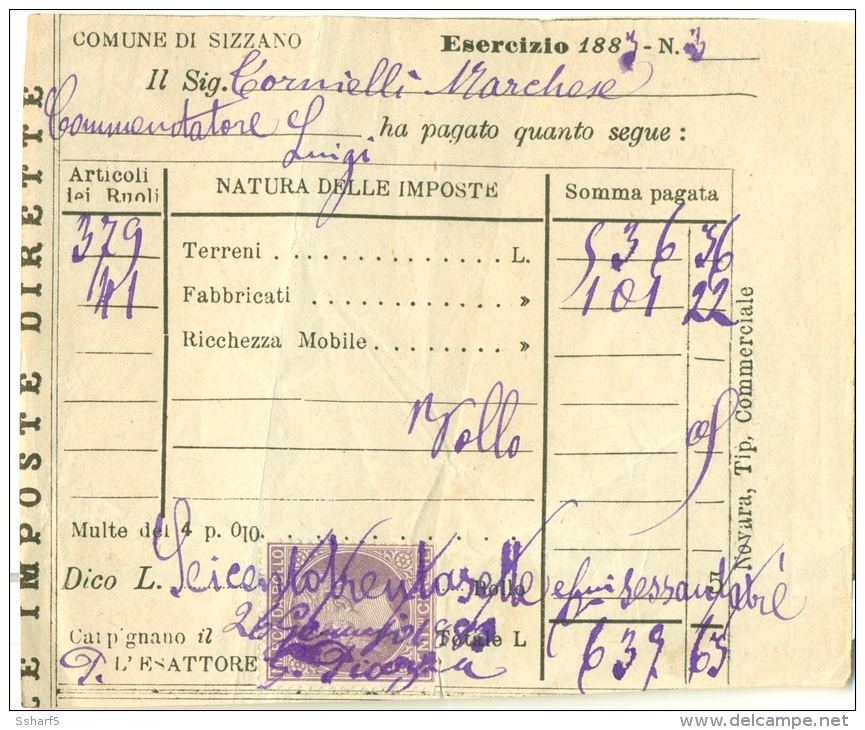 COMUNE DI SIZZANO Esercizio 1883 - N. 3
Il Sig. Tornielli Marchese
Commendatore Luigi ha pagato quanto segue :
Articoli dei Ruoli NATURA DELLE IMPOSTE Somma pagata
379 Terreni . . . . . . . . . . . . . . . L. 536 36
141 Fabbricati . . . . . . . . . . . . » 101 22
Ricchezza Mobile . . . . . . . »
Bollo 05
Multe del 4 p. 0|0. . . . . . . . .
Dico L. Seicentotrentasette e cmi sessantatré
Bollo 5
Carpignano il 26 Totale L 637 63
P. L'ESATTORE
LE IMPOSTE DIRETTE
Novara, Tip. Commerciale
MARCA DA BOLLO
Ssharf5
delcampe.net